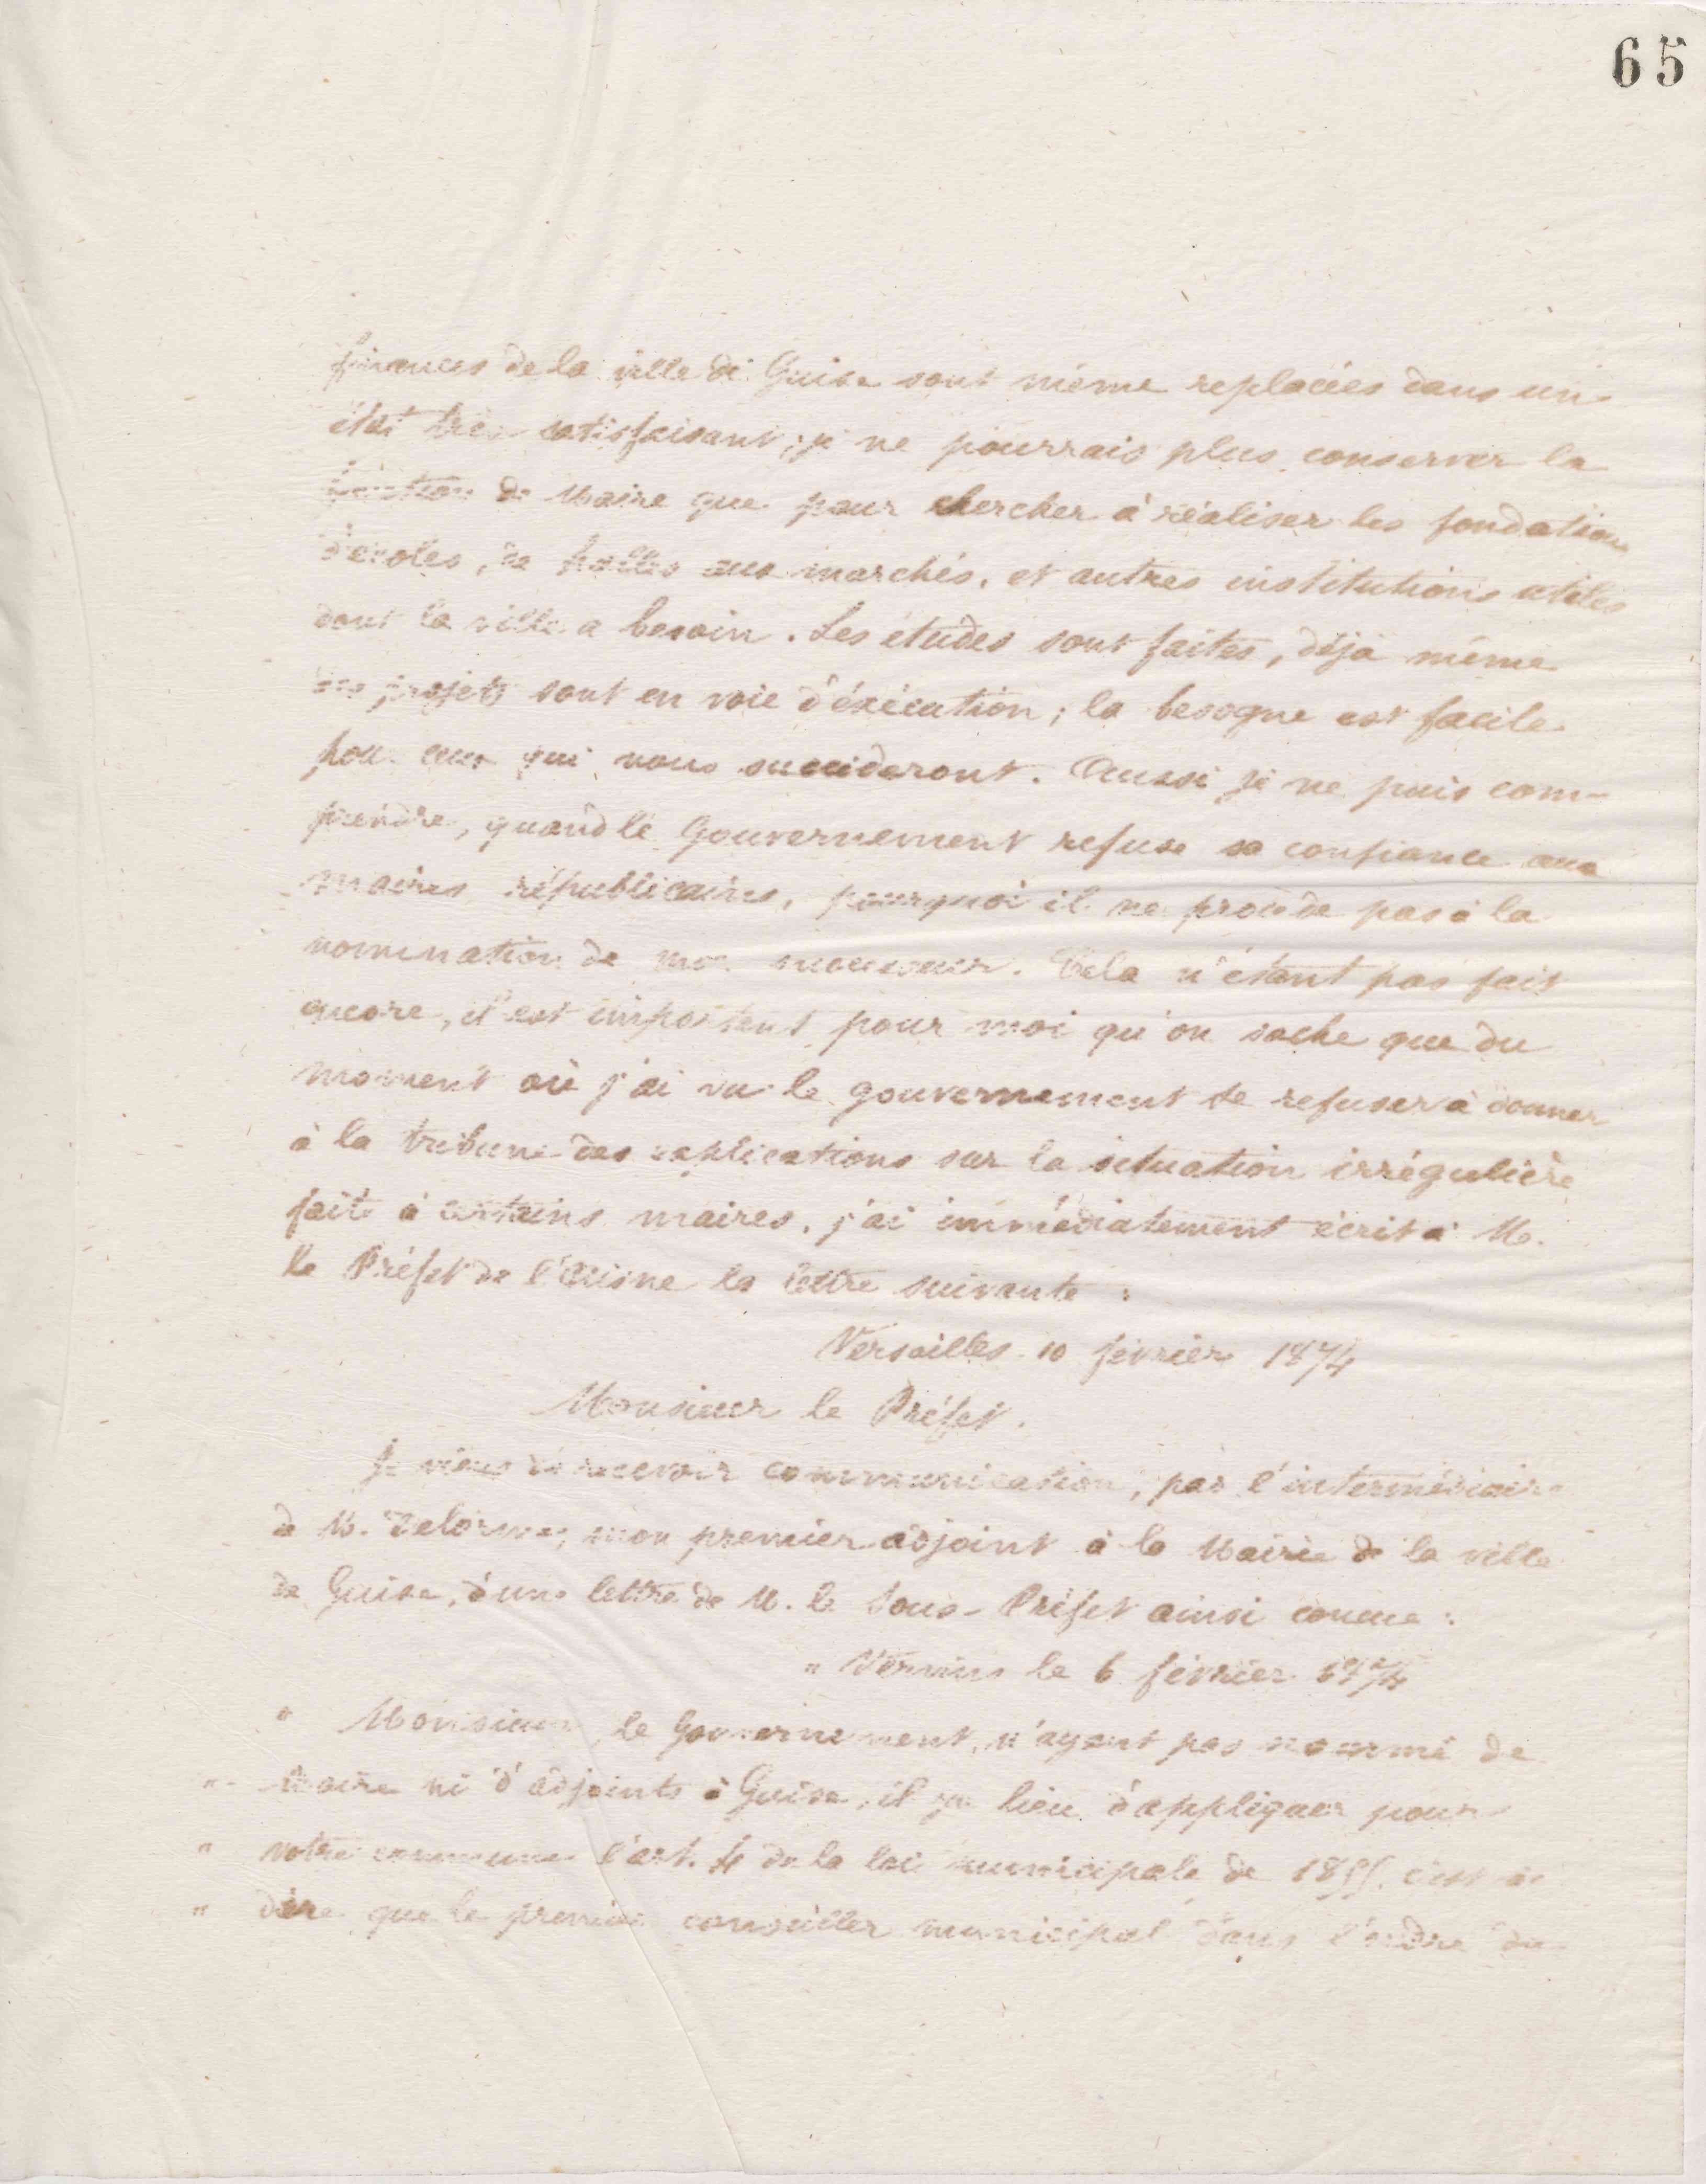 65
finances de la ville de Guise sont même replacées dans un
état très satisfaisant; je ne pourrais plus conserver la
fonction de Maire que pour chercher à réaliser les fondations
d'écoles, de halles aux marchés, et autres institutions utiles
dont la ville a besoin. Les études sont faites, déjà même
des projets sont en voie d'éxécution; la besogne est facile
pour ceux qui nous succéderont. Aussi je ne puis com-
prendre, quand le Gouvernement refuse sa confiance aux
maires républicains, pourquoi il ne procède pas à la
nomination de mon successeur. Cela n'étant pas fait
encore, il est important pour moi qu'on sache que du
moment où j'ai vu le gouvernement se refuser à donner
à la tribune des explications sur la situation irrégulière
faite à certains maires, j'ai immédiatement écrit à M.
le Préfet de l'Aisne la lettre suivante :
Versailles 10 février 1874
Monsieur le Préfet.
Je viens de recevoir communication, par l'intermédiaire
de M. Delorme, mon premier adjoint à la Mairie de la ville
de Guise, d'une lettre de M. le Sous-Préfet ainsi conçue :
" Vervins le 6 février 1874
" Monsieur, le Gouvernement, n'ayant pas nommé de
" Maire ni d'adjoints à Guise, il y a lieu d'appliquer pour
" votre commune l'art. 4 de la loi municipale de 1855. c'est à
" dire que le premier conseiller municipal dans l'ordre du